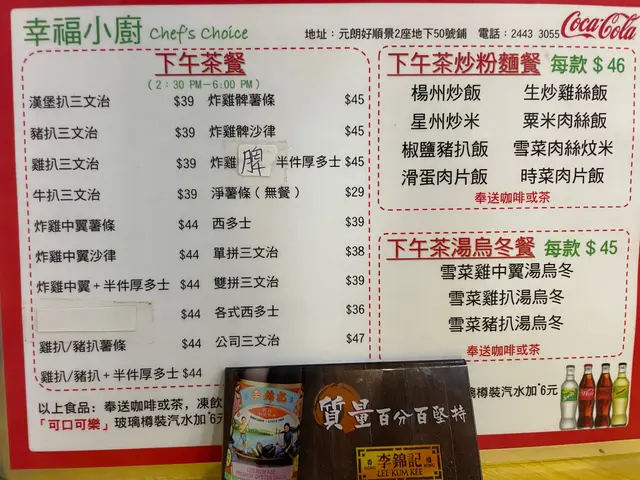 幸福小廚 Chef's Choice
地址：元朗好順景2座地下50號鋪 電話：2443 3055
Coca-Cola
下午茶餐
(2:30 PM-6:00 PM)
漢堡扒三文治 $39
豬扒三文治 $39
雞扒三文治 $39
牛扒三文治 $39
炸雞中翼薯條 $44
炸雞中翼沙律 $44
炸雞中翼+半件厚多士 $44
雞扒/豬扒薯條 $44
雞扒/豬扒+半件厚多士 $44
炸雞髀薯條 $45
炸雞髀沙律 $45
炸雞髀 半件厚多士 $45
淨薯條(無餐) $29
西多士 $39
單拼三文治 $38
雙拼三文治 $39
各式西多士 $36
公司三文治 $47
以上食品：奉送咖啡或茶，凍飲
「可口可樂」玻璃樽裝汽水加*6元
下午茶炒粉麵餐 每款$46
楊州炒飯 生炒雞絲飯
星州炒米 粟米肉絲飯
椒鹽豬扒飯 雪菜肉絲炆米
滑蛋肉片飯 時菜肉片飯
奉送咖啡或茶
下午茶湯烏冬餐 每款$45
雪菜雞中翼湯烏冬
雪菜雞扒湯烏冬
雪菜豬扒湯烏冬
奉送咖啡或茶
璃樽裝汽水加*6元
質量百分百堅持
李錦記
LEE KUM KEE